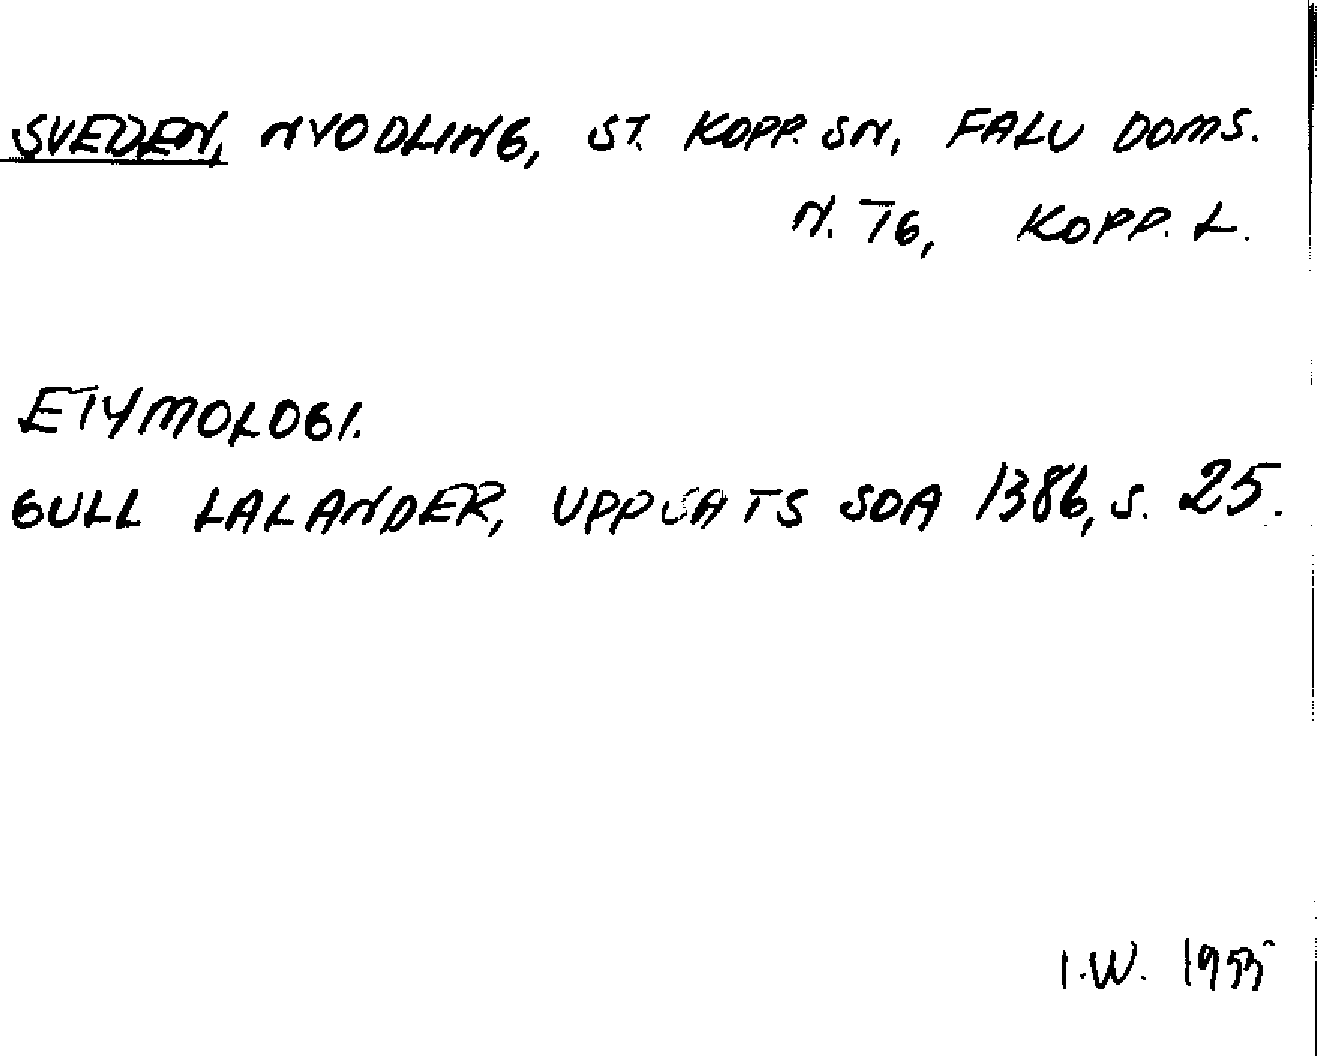 SVEDEN, NYODLING, ST. KOPP. SN, FALU DOMS.
N. TG, KOPP. L.
ETYMOLOGI.
GULL LALANDER, UPPSATS SOA 1386, S. 25.
I.W. 1955